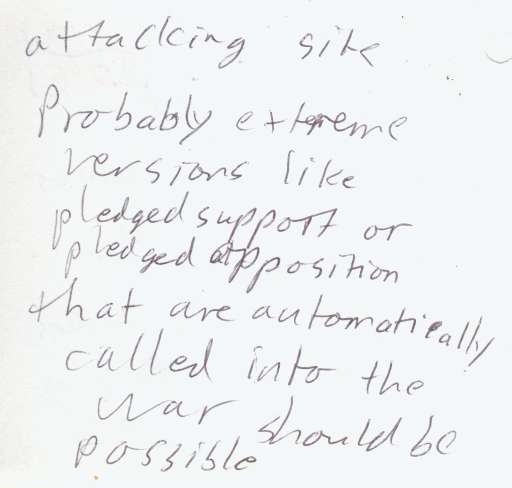 attacking site
Probably extreme
versions like
pledged support or
pledged opposition
that are automatically
called into the
war should be
possible